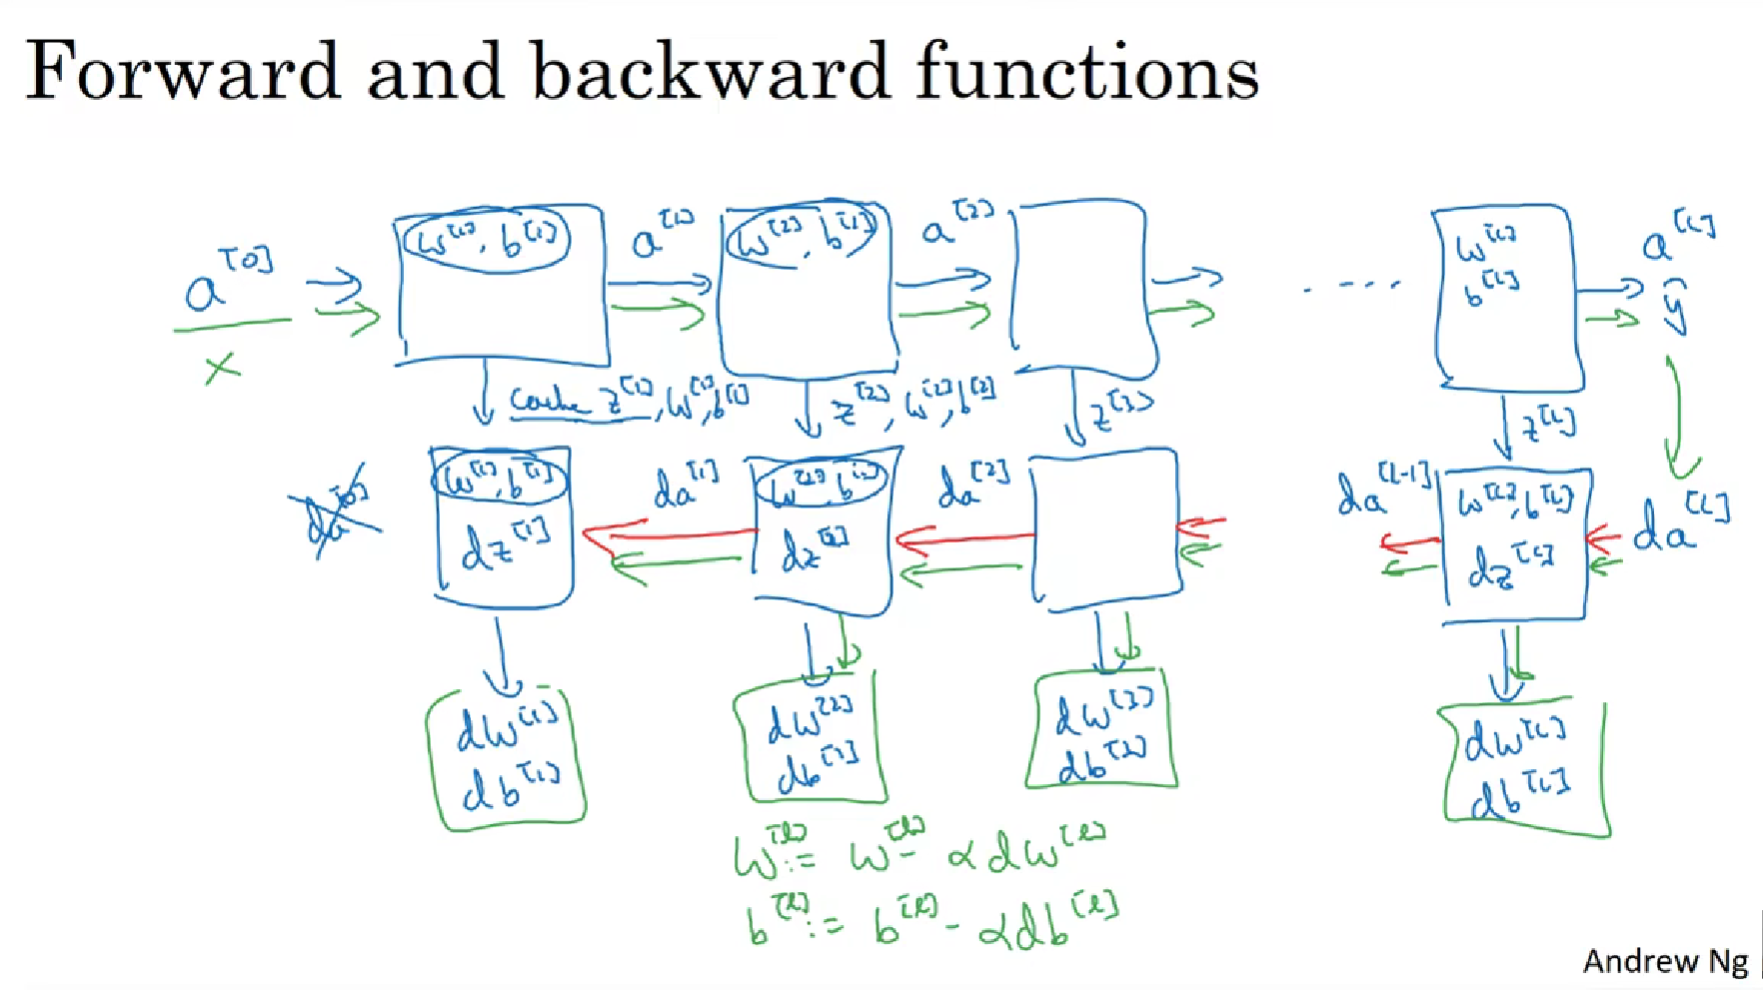 Forward and backward functions
a^[0]
x
w^[1], b^[1]
a^[1]
w^[2], b^[1]
a^[2]
w^[L]
b^[L]
a^[L]
ŷ
Cache z^[1], w^[1], b^[1]
z^[2], w^[2], b^[2]
z^[3]
z^[L]
da^[0]
w^[1], b^[1]
dz^[1]
da^[1]
w^[2], b^[2]
dz^[2]
da^[2]
da^[L-1]
w^[L], b^[L]
dz^[L]
da^[L]
dw^[1]
db^[1]
dw^[2]
db^[2]
dw^[3]
db^[3]
dw^[L]
db^[L]
w^[l] := w^[l] - αdw^[l]
b^[l] := b^[l] - αdb^[l]
Andrew Ng